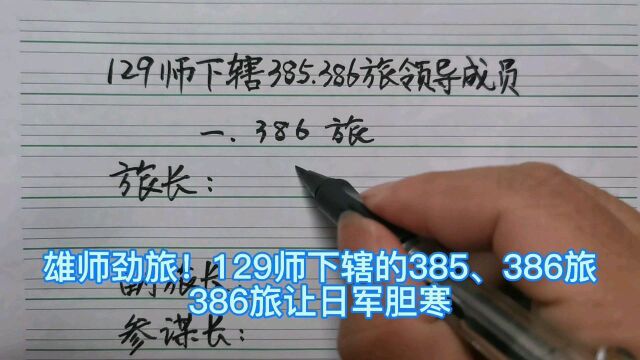 129师下辖385.386旅领导成员
一. 386 旅
旅长:
雄师劲旅!129师下辖的385、386旅
386旅让日军胆寒
参谋长: